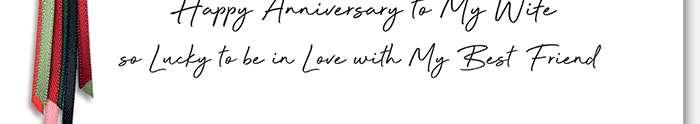 Happy Anniversary to My Wife
so Lucky to be in Love with My Best Friend